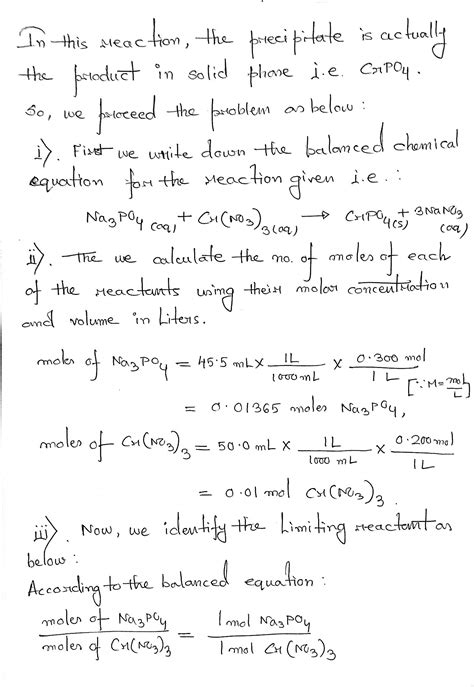 In this reaction, the precipitate is actually
the product in solid phase i.e. CrPO4.
So, we proceed the problem as below :
i). First we write down the balanced chemical
equation for the reaction given i.e. :
Na3PO4 (aq) + Cr(NO3)3(aq) → CrPO4(s) + 3NaNO3 (aq)
ii). The we calculate the no. of moles of each
of the reactants using their molar concentration
and volume in Liters.
moles of Na3PO4 = 45.5 mL × 1L/1000 mL × 0.300 mol/1 L [∵ M = mol/L]
= 0.01365 moles Na3PO4,
moles of Cr(NO3)3 = 50.0 mL × 1L/1000 mL × 0.200 mol/1L
= 0.01 mol Cr(NO3)3.
iii). Now, we identify the Limiting reactant as
below :
According to the balanced equation :
moles of Na3PO4/moles of Cr(NO3)3 = 1 mol Na3PO4/1 mol Cr(NO3)3